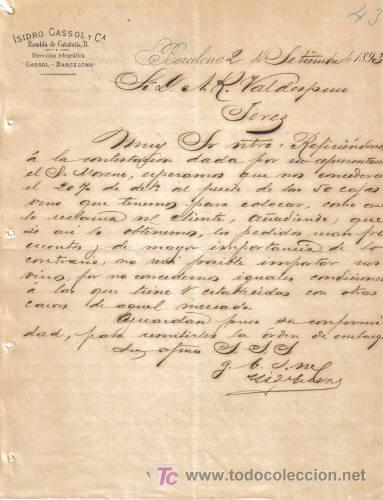 43
ISIDRO CASSOL Y Cª
Rambla de Cataluña, 31.
Dirección telegráfica
CASSOL - BARCELONA
Barcelona 2 de Setiembre de 1893
Sr. D. A. R. Valdespino
Jerez
Muy Sr. ntro: Refiriéndonos
á la contestacion dada por su representante
el Sr. Moreno, esperamos que nos concederá
el 20% de dto. al precio de las 50 cajas
vino que tenemos para colocar, como
lo reclama el cliente, añadiendo, que
si asi lo obtenemos, los pedidos seran fre
cuentes, y de mayor importancia; de lo
contrario, no será posible importar sus
vinos, por no concedernos iguales condiciones
á las que tiene V. establecidas con otras
casas de aquel mercado.
Aguardan pues su conformi
dad, para remitirles la órden de embarque
Sus afmos S. S. S.
q. b. s. m.
TC
www.todocoleccion.net